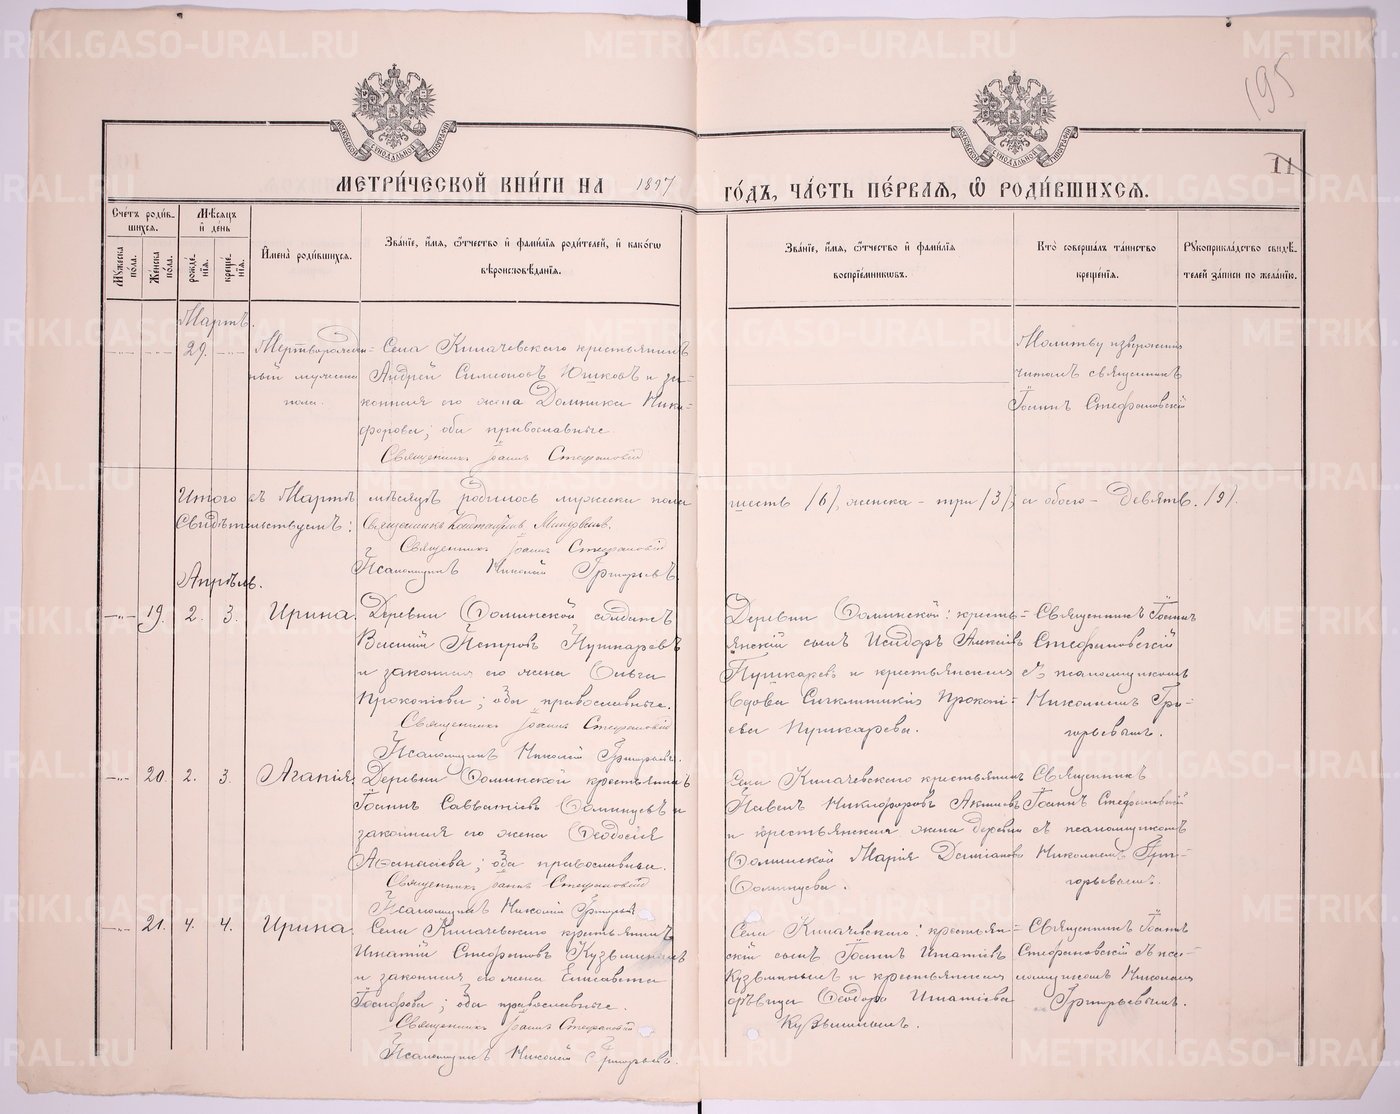 195
11
МЕТРИ́ЧЕСКОЙ КНИ́ГИ НА 1897 ГО́ДЪ, ЧА́СТЬ ПЕ́РВАЯ, Ѡ РОДИ́ВШИХСЯ.
Сче́тъ роди́в-
шихся.
Му́жеска по́ла.
Же́нска по́ла.
Мѣ́сяцъ и де́нь
рожде́-нїя.
креще́-нїя.
И҆мена̀ роди́вшихся.
Зва́нїе, и҆́мя, ѻ҆́тчество и҆ фами́лїя роди́телей, и҆ како́гѡ
вѣроисповѣ́данїя.
Зва́нїе, и҆́мя, ѻ҆́тчество и҆ фами́лїя
воспрїе́мникѡвъ.
Кто̀ соверша́лъ та́инство
креще́нїя.
Рꙋкоприкла́дство свидѣ́-
телей за́писи по жела́нїю.
Мартъ.
29.
Мертворожден-
ный мужеска
пола.
Села Килачевскаго крестьянинъ
Андрей Симеоновъ Юшковъ и за-
конная его жена Домника Ники-
форова; оба православные.
Священникъ Іоаннъ Стефановскій
Молитву
читалъ священникъ
Іоаннъ Стефановскій
Итого въ Мартѣ мѣсяцѣ родилось мужеска пола
шесть /6/, женска - три /3/, а обоего - девять. /9/.
Свидѣтельствуемъ: Священникъ
Священникъ Іоаннъ Стефановскій
Псаломщикъ Николай Григорьевъ
Апрѣль.
19. 2. 3. Ирина.
Деревни Фоминской солдатъ
Василій Петровъ Пушкаревъ
и законная его жена Ольга
Прокопіева; оба православные.
Священникъ Іоаннъ Стефановскій
Псаломщикъ Николай Григорьевъ
Деревни Фоминской: кресть-
янскій сынъ Исидоръ Алексіевъ
Пушкаревъ и крестьянская
вдова Сигклитикія Прокопі-
ева Пушкарева.
Священникъ Іоаннъ
Стефановскій
съ псаломщикомъ
Николаемъ Гри-
горьевымъ.
20. 2. 3. Агапія.
Деревни Фоминской крестьянинъ
Іоаннъ Савватіевъ Фоминцевъ и
законная его жена Ѳеодосія
Аѳанасіева; оба православные.
Священникъ Іоаннъ Стефановскій
Псаломщикъ Николай Григорьевъ
Села Килачевскаго крестьянинъ
Павелъ Никифоровъ
и крестьянская жена деревни
Фоминской Марія Даміанова
Фоминцева.
Священникъ
Іоаннъ Стефановскій
съ псаломщикомъ
Николаемъ Гри-
горьевымъ.
21. 4. 4. Ирина.
Села Килачевскаго крестьянинъ
Игнатій Стефановъ Кузьминыхъ
и законная его жена Елисавета
Іосифова; оба православные.
Священникъ Іоаннъ Стефановскій
Псаломщикъ Николай Григорьевъ
Села Килачевскаго: крестьян-
скій сынъ Іоаннъ Игнатіевъ
Кузьминыхъ и крестьянская
дѣвица Ѳеодора Игнатіева
Кузьминыхъ.
Священникъ Іоаннъ
Стефановскій съ пса-
ломщикомъ Николаемъ
Григорьевымъ.
METRIKI.GASO-URAL.RU